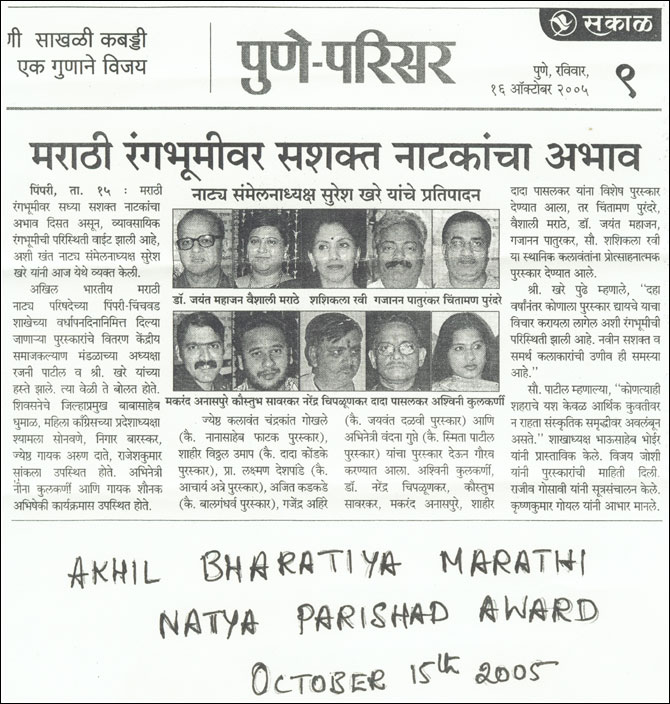 सकाळ
णी साखळी कबड्डी
एक गुणाने विजय
पुणे-परिसर
पुणे, रविवार,
१६ ऑक्टोबर २००५
९
मराठी रंगभूमीवर सशक्त नाटकांचा अभाव
पिंपरी, ता. १५ : मराठी
रंगभूमीवर सध्या सशक्त नाटकांचा
अभाव दिसत असून, व्यावसायिक
रंगभूमीची परिस्थिती वाईट झाली आहे,
अशी खंत नाट्य संमेलनाध्यक्ष सुरेश
खरे यांनी आज येथे व्यक्त केली.
अखिल भारतीय मराठी
नाट्य परिषदेच्या पिंपरी-चिंचवड
शाखेच्या वर्धापनदिनानिमित्त दिल्या
जाणाऱ्या पुरस्कारांचे वितरण केंद्रीय
समाजकल्याण मंडळाच्या अध्यक्षा
रजनी पाटील व श्री. खरे यांच्या
हस्ते झाले. त्या वेळी ते बोलत होते.
शिवसनेचे जिल्हाप्रमुख बाबासाहेब
धुमाळ, महिला काँग्रेसच्या प्रदेशाध्यक्षा
श्यामला सोनवणे, निगार बारस्कर,
ज्येष्ठ गायक अरुण दाते, राजेशकुमार
सांकला उपस्थित होते. अभिनेत्री
नीना कुलकर्णी आणि गायक शौनक
अभिषेकी कार्यक्रमास उपस्थित होते.
नाट्य संमेलनाध्यक्ष सुरेश खरे यांचे प्रतिपादन
डॉ. जयंत महाजन वैशाली मराठे शशिकला रवी गजानन पातुरकर चिंतामण पुरंदरे
मकरंद अनासपुरे कौस्तुभ सावरकर नरेंद्र चिपळूणकर दादा पासलकर अश्विनी कुलकर्णी
ज्येष्ठ कलावंत चंद्रकांत गोखले
(कै. नानासाहेब फाटक पुरस्कार),
शाहीर विठ्ठल उमाप (कै. दादा कोंडके
पुरस्कार), प्रा. लक्ष्मण देशपांडे (कै.
आचार्य अत्रे पुरस्कार), अजित कडकडे
(कै. बालगंधर्व पुरस्कार), गजेंद्र अहिरे
(कै. जयवंत दळवी पुरस्कार) आणि
अभिनेत्री वंदना गुप्ते (कै. स्मिता पाटील
पुरस्कार) यांचा पुरस्कार देऊन गौरव
करण्यात आला. अश्विनी कुलकर्णी,
डॉ. नरेंद्र चिपळूणकर, कौस्तुभ
सावरकर, मकरंद अनासपुरे, शाहीर
दादा पासलकर यांना विशेष पुरस्कार
देण्यात आला, तर चिंतामण पुरंदरे,
वैशाली मराठे, डॉ. जयंत महाजन,
गजानन पातुरकर, सौ. शशिकला रवी
या स्थानिक कलावंतांना प्रोत्साहनात्मक
पुरस्कार देण्यात आले.
श्री. खरे पुढे म्हणाले, ''दहा
वर्षांनंतर कोणाला पुरस्कार द्यायचे याचा
विचार करायला लागेल अशी रंगभूमीची
परिस्थिती झाली आहे. नवीन सशक्त व
समर्थ कलाकारांची उणीव ही समस्या
आहे.''
सौ. पाटील म्हणाल्या, ''कोणत्याही
शहराचे यश केवळ आर्थिक कुवतीवर
न राहता सांस्कृतिक समृद्धीवर अवलंबून
असते.'' शाखाध्यक्ष भाऊसाहेब भोईर
यांनी प्रास्ताविक केले. विजय जोशी
यांनी पुरस्कारांची माहिती दिली.
राजीव गोसावी यांनी सूत्रसंचालन केले.
कृष्णकुमार गोयल यांनी आभार मानले.
AKHIL BHARATIYA MARATHI
NATYA PARISHAD AWARD
OCTOBER 15th 2005